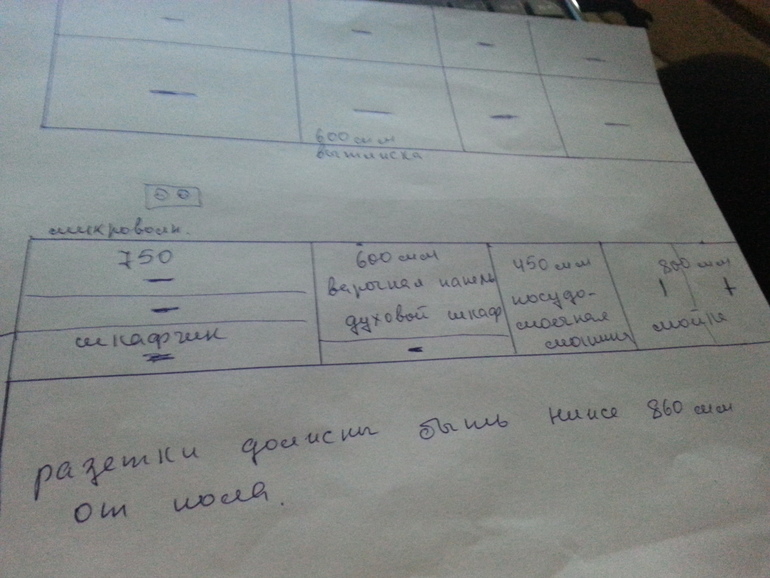 600 мм
вытяжка
микроволн.
750
шкафчик
600 мм
варочная панель
духовой шкаф
450 мм
посудо-
моечная
машина
800 мм
мойка
разетки должны быть ниже 860 мм
от пола.